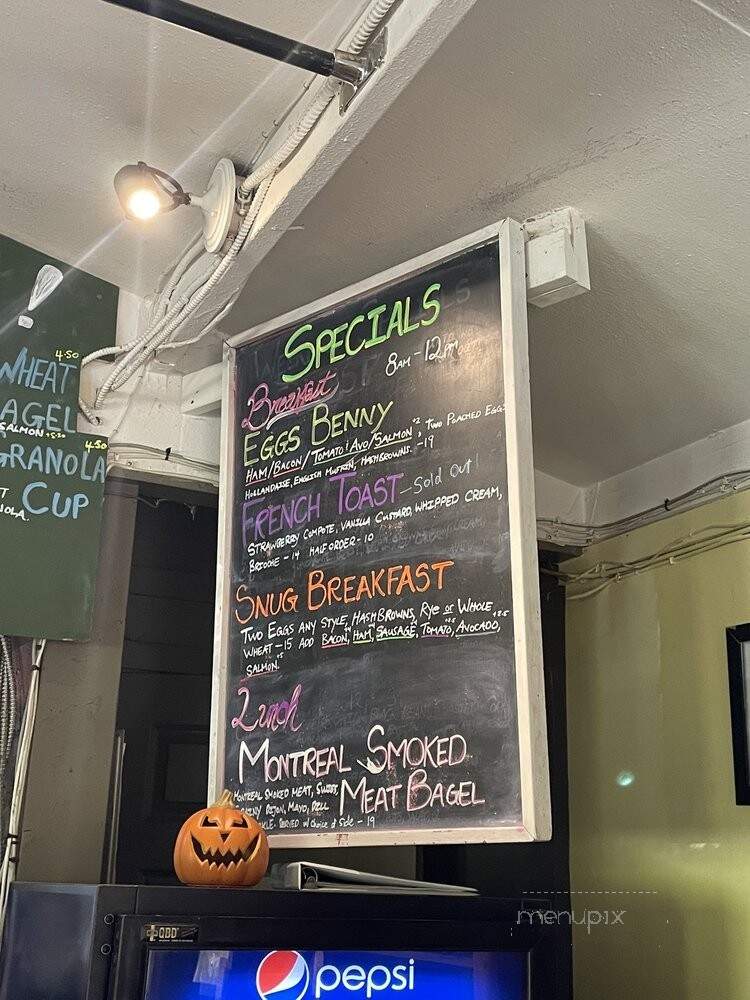 WHEAT 4.50
AGEL
SALMON
GRANOLA 4.50
CUP
SPECIALS
Breakfast 8AM-12PM
EGGS BENNY
HAM/BACON/TOMATO/AVO/SALMON+2, TWO POACHED EGGS
HOLLANDAISE, ENGLISH MUFFIN, HASHBROWNS.-19
FRENCH TOAST-Sold out!
STRAWBERRY COMPOTE, VANILLA CUSTARD, WHIPPED CREAM,
BRIOCHE-14 HALF ORDER-10
SNUG BREAKFAST
TWO EGGS ANY STYLE, HASHBROWNS, RYE or WHOLE
WHEAT-15 ADD BACON, HAM, SAUSAGE, TOMATO, AVOCADO,
SALMON.
Lunch
MONTREAL SMOKED
MEAT BAGEL
MONTREAL SMOKED MEAT, SWISS,
DIJON, MAYO, DILL
SERVED w/ CHOICE of Side-19
QBD
pepsi
menupix